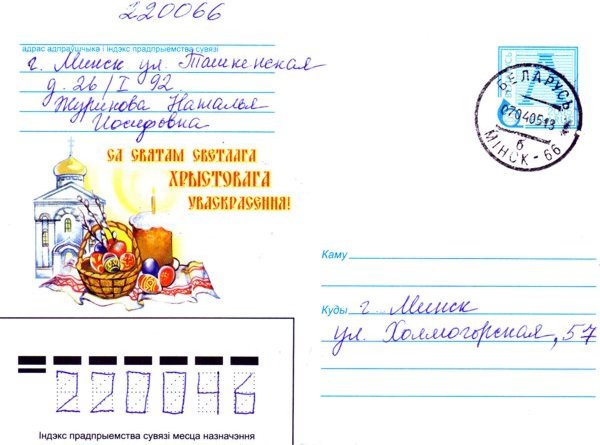 220066
адрас адпраўшчыка і індэкс прадпрыемства сувязі
г. Минск ул. Ташкенская
д. 26/I 92
Журинова Наталья
Иосифовна
СА СВЯТАМ СВЕТЛАГА
ХРЫСТОВАГА
УВАСКРАСЕННЯ!
БЕЛАРУСЬ
МІНСК-66
б
Каму
Куды г. Минск
ул. Холмогорская, 57
220046
Індэкс прадпрыемства сувязі месца назначэння